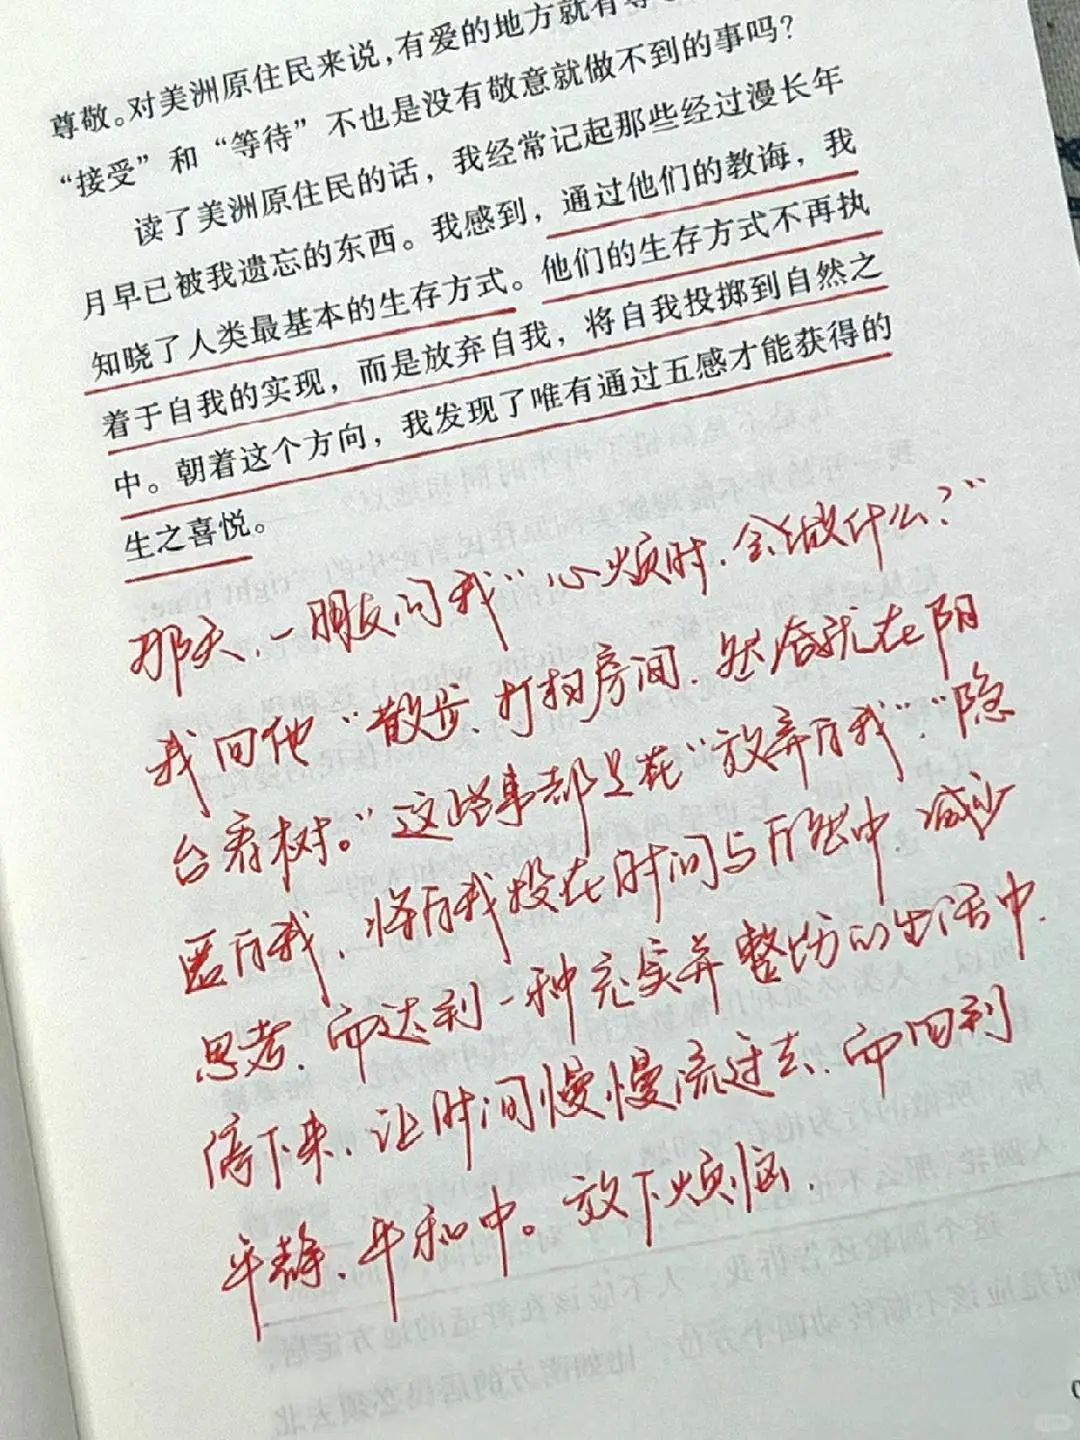 对美洲原住民来说，有爱的地方就有
尊敬。对美洲原住民的人来说，
“接受”和“等待”不也是没有敬意就做不到的事吗？
读了美洲原住民的话，我经常记起那些经过漫长年
月早已被我遗忘的东西。我感到，通过他们的教诲，我
知晓了人类最基本的生存方式。他们的生存方式不再执
着于自我的实现，而是放弃自我，将自我投掷到自然之
中。朝着这个方向，我发现了唯有通过五感才能获得的
生之喜悦。
那天、一朋友问我“心烦时、会做什么？”
我回他“散步、打扫房间、然后就在阳
台看树。”这些事都是在“放弃自我”“隐
匿自我、将自我投在时间与自然中、减少
思考、而达到一种充实并整洁的生活中、
停下来、让时间慢慢流过去、而回到
平静、平和中。放下烦恼.